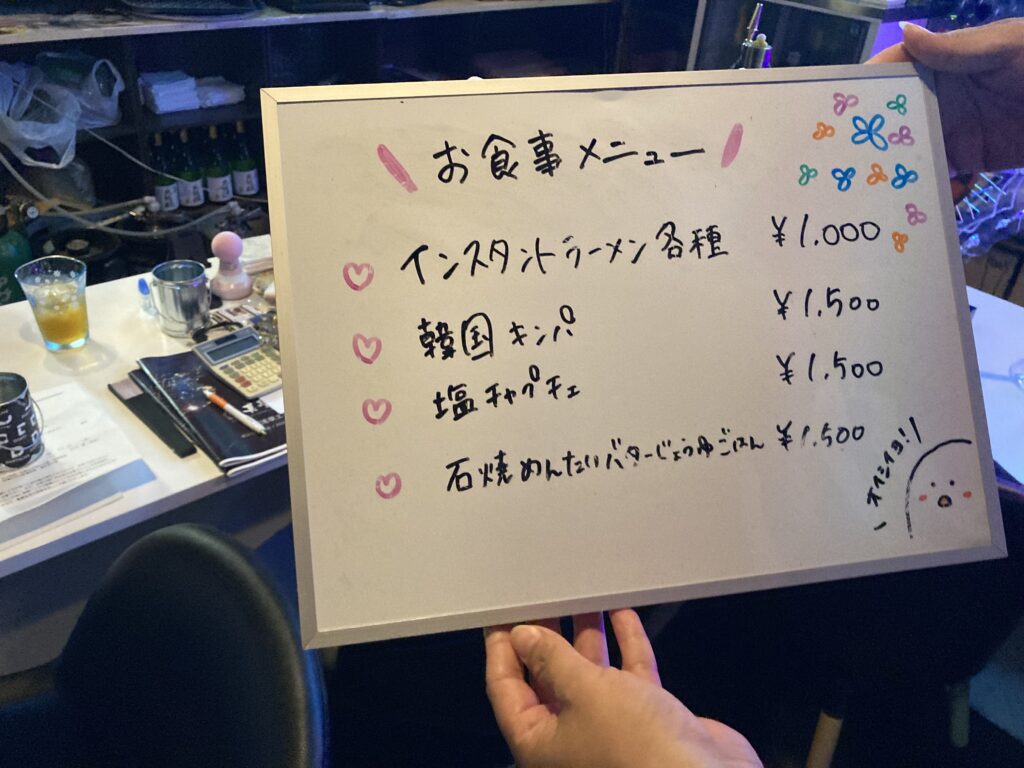 お食事メニュー
インスタントラーメン各種 ¥1.000
韓国キンパ ¥1.500
塩チャプチェ ¥1.500
石焼めんたいバターじょうゆごはん ¥1.500
オイシイヨ!